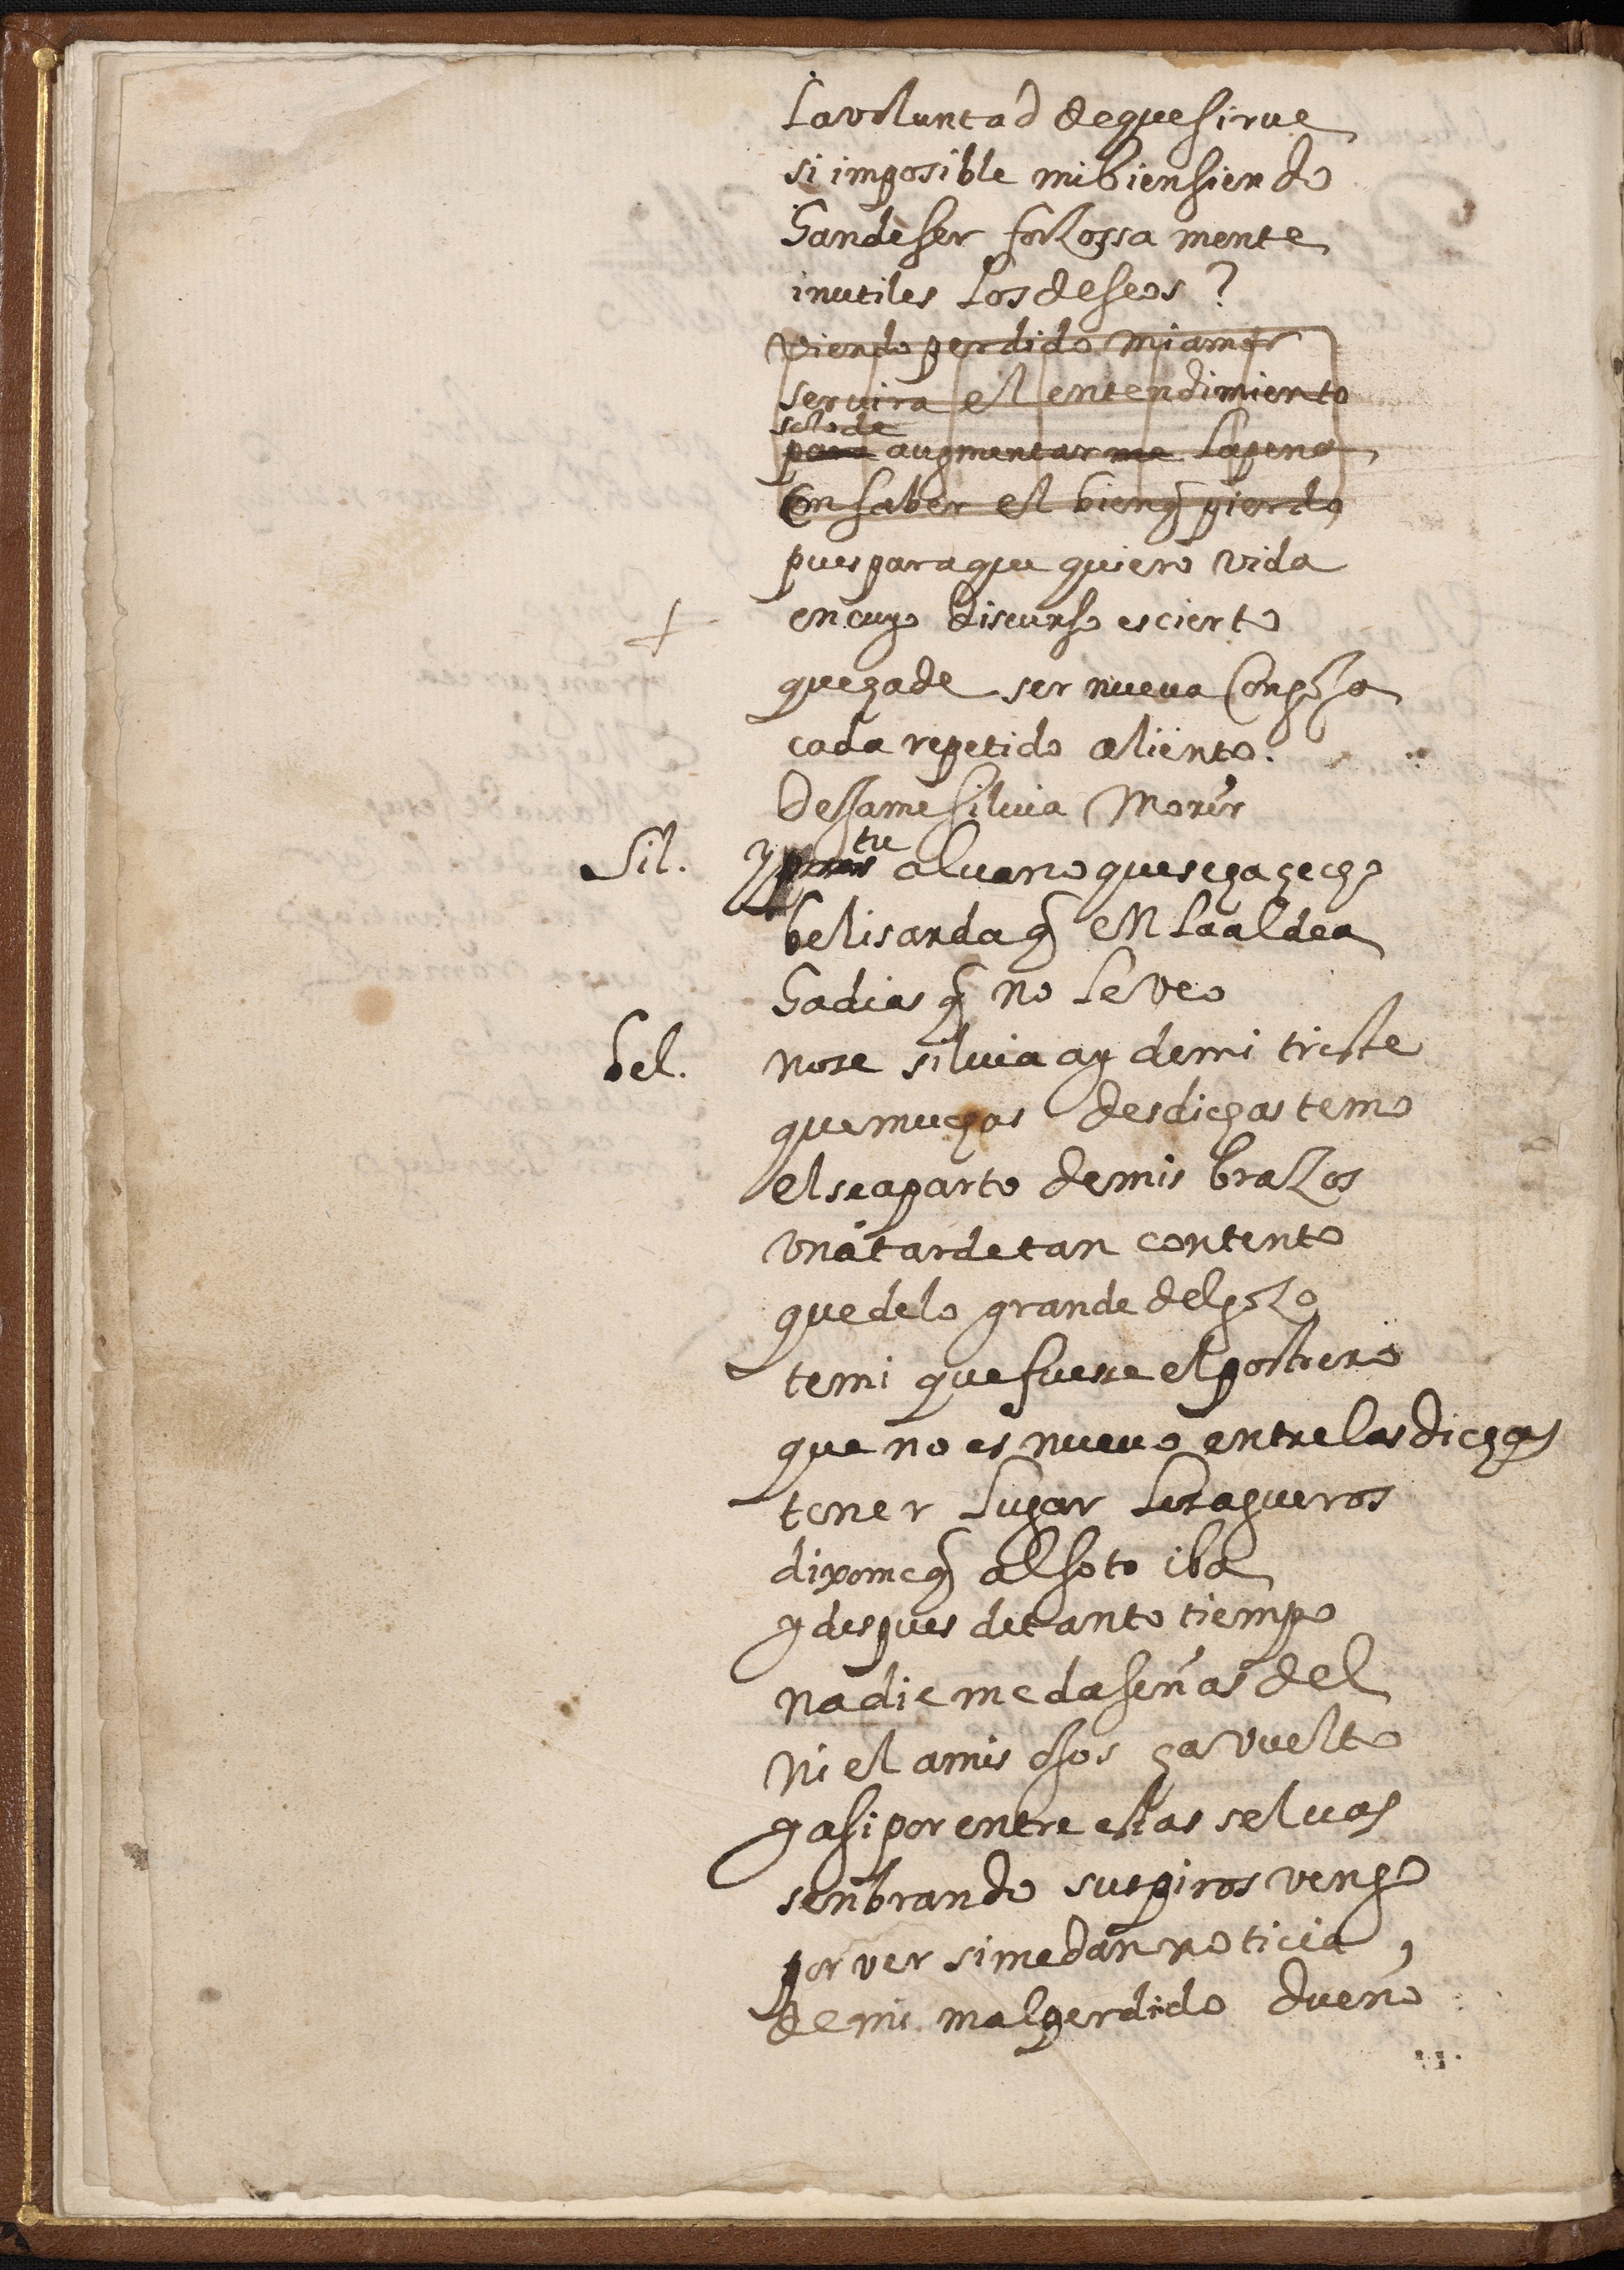 la voluntad de que sirue
si imposible mi bien siendo
han de ser forzossa mente
inutiles los deseos?
viendo perdido mi amor
seruira el entendimiento
solo de
para augmentarme la pena
en saber el bien q pierdo
pues para que quiero vida
en cuyo discurso es cierto
que ha de ser nueva congoja
cada repetido aliento.
dejame siluia morir
Sil. y pues tu aluano que se ha hecho
belisarda q en la aldea
ha dias q no le veo
bel. no se siluia ay de mi triste
que muchas desdichas temo
el se aparto de mis brazos
vna tarde tan contento
que de lo grande del gozo
temi que fuese el postrero
que no es nueuo entre las dichas
tener lugar los agueros
dixome q al soto iba
y despues de tanto tiempo
nadie me da señas del
ni el a mis ojos ha vuelto
y asi por entre estas seluas
senbrando suspiros vengo
por ver si me dan noticia,
de mi mal perdido dueño